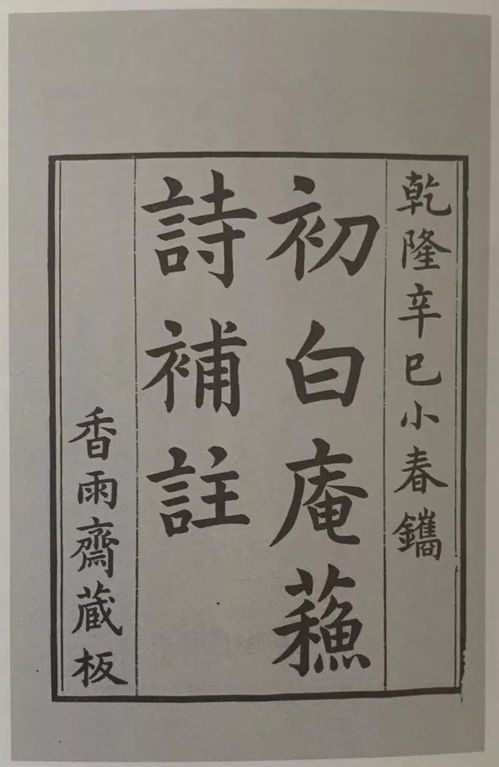 乾隆辛巳小春鐫
初白庵蘓
詩補註
香雨齋蔵板